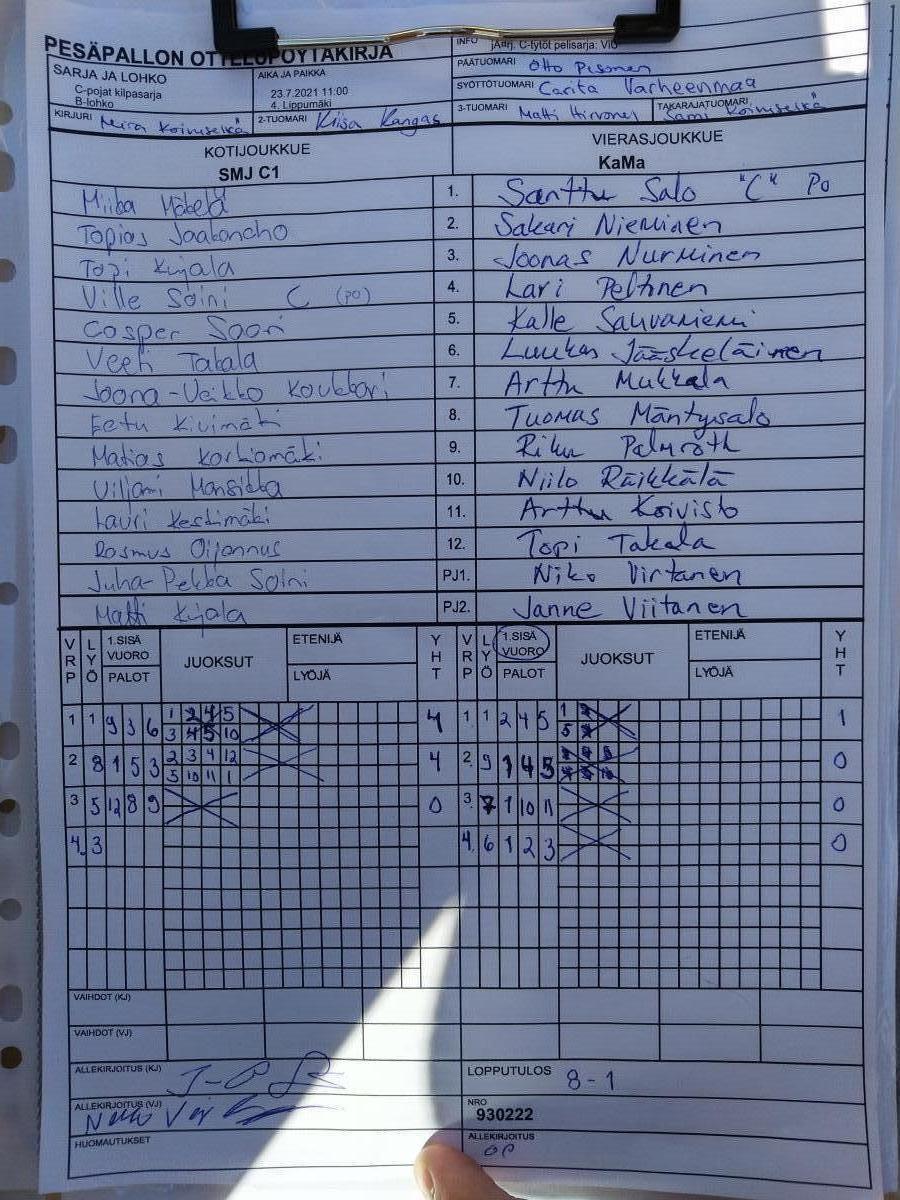 PESÄPALLON OTTELUPÖYTÄKIRJA
SARJA JA LOHKO
C-pojat kilpasarja
B-lohko
AIKA JA PAIKKA
23.7.2021 11:00
4. Lippumäki
INFO jÄärj. C-tytöt pelisarja: ViU
PÄÄTUOMARI Otto
SYÖTTÖTUOMARI Carita Varheenmaa
KIRJURI Mira Koivuselkä
2-TUOMARI Kiisa Kangas
3-TUOMARI Matti Hirvonen
TAKARAJATUOMARI Sami Koivuselkä
KOTIJOUKKUE
SMJ C1
VIERASJOUKKUE
KaMa
Miika Mäkelä 1. Santtu Salo "C" Po
Topias Jaakoncho 2. Sakari Nieminen
Topi Kujala 3. Joonas Nurminen
Ville Soini C (po) 4. Lari Peltonen
Casper Saari 5. Kalle Sahvaniemi
Veeti Takala 6. Luukas Jääskeläinen
Joona-Veikko Koukkari 7. Arttu Mukkala
Eetu Kivimäki 8. Tuomas Mäntysalo
Matias Korkiomäki 9. Riku Palmroth
Viljami Mansikka 10. Niilo Räikkälä
Lauri Keskimäki 11. Arttu Koivisto
Rasmus Oijennus 12. Topi Takala
Juha-Pekka Soini PJ1. Niko Virtanen
Matti Kujala PJ2. Janne Viitanen
VRP LYÖ 1.SISÄ VUORO PALOT JUOKSUT ETENIJÄ LYÖJÄ YHT VRP LYÖ 1.SISÄ VUORO PALOT JUOKSUT ETENIJÄ LYÖJÄ YHT
1 1 9 3 6 1 2 4 5 4 1. 1 2 4 5 1 1
3 4 5 10 5
2 8 1 5 3 2 3 4 12 4 2. 9 1 4 5 0
5 10 11 1
3 5 12 8 9 0 3. 7 1 10 11 0
4. 3 4. 6 1 2 3 0
VAIHDOT (KJ)
VAIHDOT (VJ)
ALLEKIRJOITUS (KJ)
LOPPUTULOS 8-1
ALLEKIRJOITUS (VJ)
NRO
930222
HUOMAUTUKSET
ALLEKIRJOITUS
OP